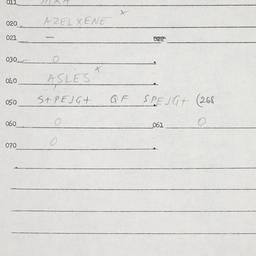 020 AZELXENE x
021 —
030 0
040 ASLES x
050 S+PEJG+ QF SPEJG+ (268
060 0 061 0
070 0